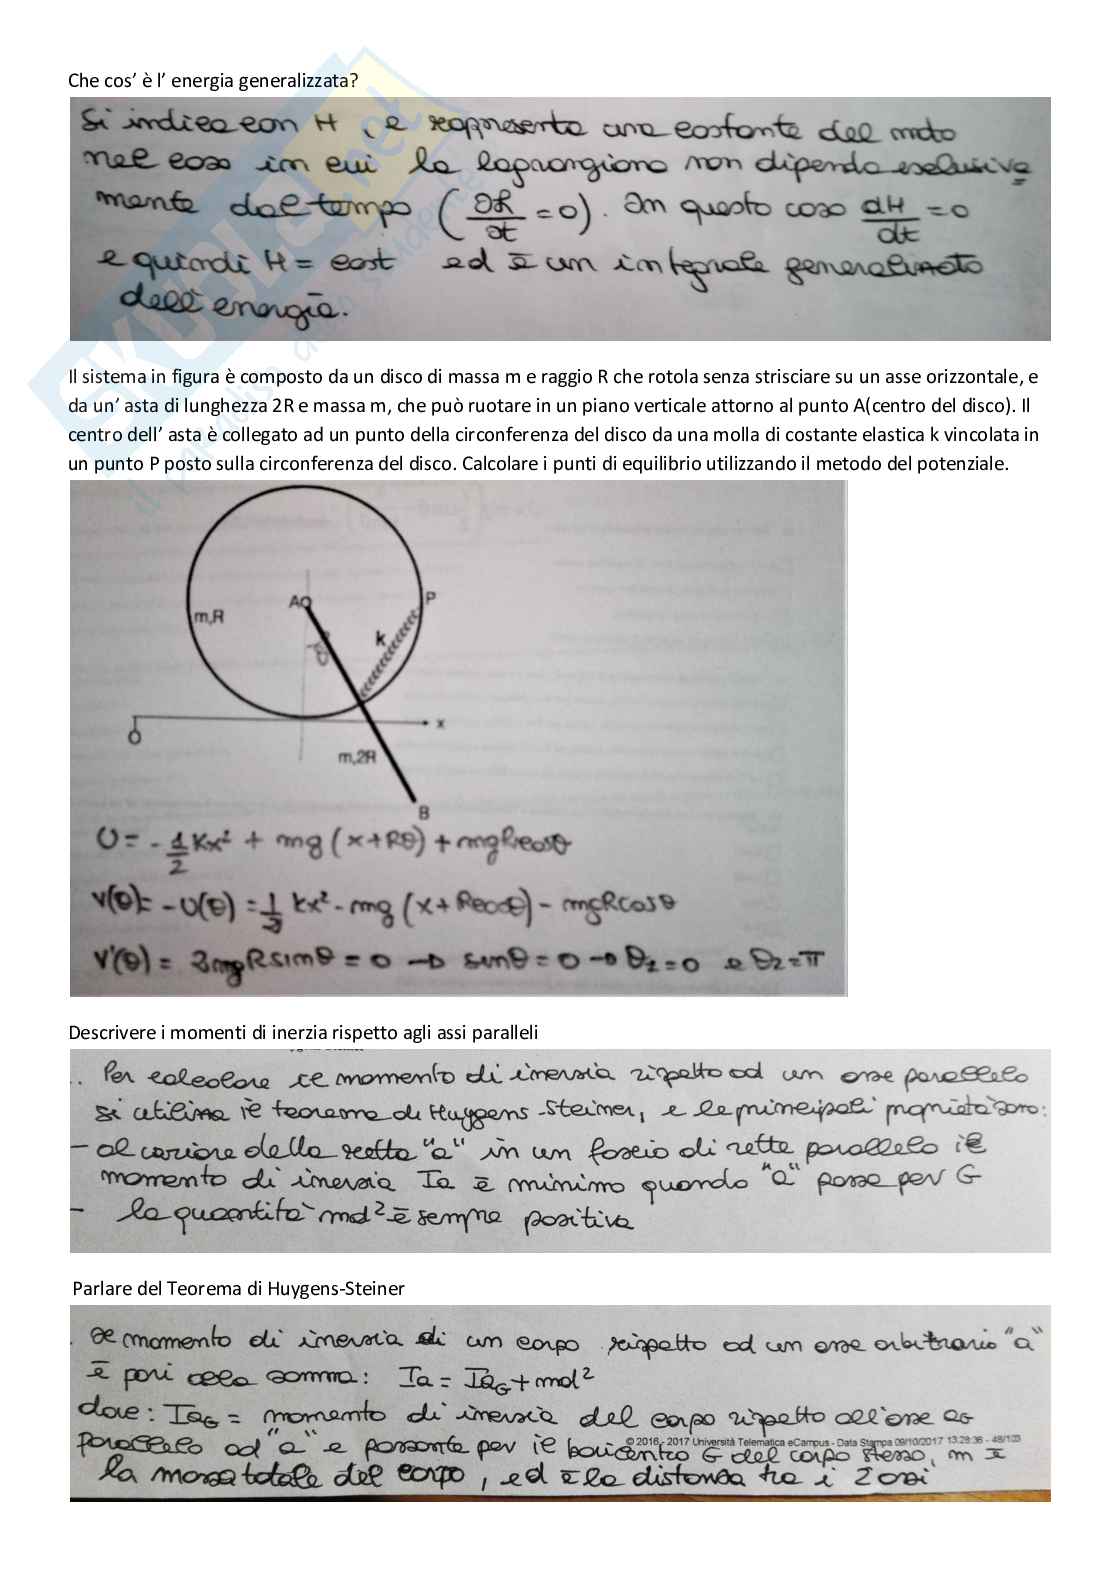 Che cos’ è l’ energia generalizzata?
Si indica con H, e rappresenta una costante del moto
nel caso in cui la lagrangiana non dipenda esclusiva
mente dal tempo (∂ℒ/∂t = 0). In questo caso dH/dt = 0
e quindi H = cost ed è un integrale generalizzato
dell'energia.
Il sistema in figura è composto da un disco di massa m e raggio R che rotola senza strisciare su un asse orizzontale, e
da un’ asta di lunghezza 2R e massa m, che può ruotare in un piano verticale attorno al punto A(centro del disco). Il
centro dell’ asta è collegato ad un punto della circonferenza del disco da una molla di costante elastica k vincolata in
un punto P posto sulla circonferenza del disco. Calcolare i punti di equilibrio utilizzando il metodo del potenziale.
A
P
m,R
k
θ
x
O
m,2R
B
U = - 1/2 Kx² + mg (x+Rθ) + mgRcosθ
V(θ)= -U(θ) = 1/2 kx² - mg (x + Rcosθ) - mgRcosθ
V'(θ) = 2mgRsinθ = 0 → sinθ = 0 → θ1 = 0 e θ2 = π
Descrivere i momenti di inerzia rispetto agli assi paralleli
Per calcolare il momento di inerzia rispetto ad un asse parallelo
si utilizza il teorema di Huygens-Steiner, e le principali proprietà sono:
- al variare della retta "a" in un fascio di rette parallelo il
momento di inerzia Ia è minimo quando "a" passa per G
- la quantità md² è sempre positiva
Parlare del Teorema di Huygens-Steiner
Il momento di inerzia di un corpo rispetto ad un asse arbitrario "a"
è pari alla somma: Ia = IaG + md²
dove: IaG = momento di inerzia del corpo rispetto all'asse aG
parallelo ad "a" e passante per il baricentro G del corpo stesso, m è
© 2016 - 2017 Università Telematica eCampus - Data Stampa 09/10/2017 13:28:36 - 48/103
la massa totale del corpo, e d è la distanza tra i 2 assi
SKUOLA.net
il paradiso dello studente